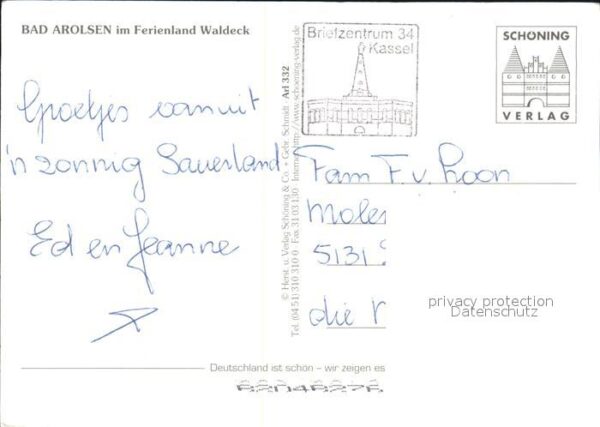 BAD AROLSEN im Ferienland Waldeck
Groetjes vanuit
'n zonnig Sauerland
Ed en Jeanne
© Herst. u. Verlag Schöning & Co. + Gebr. Schmidt Arl 332
Tel. (04 51) 310 310-0 · Fax 31 03 130 · Internet: http://www.schoening-verlag.de
Briefzentrum 34
Kassel
SCHÖNING
VERLAG
Fam F. v. Roon
5131
die
privacy protection
Datenschutz
Deutschland ist schön – wir zeigen es